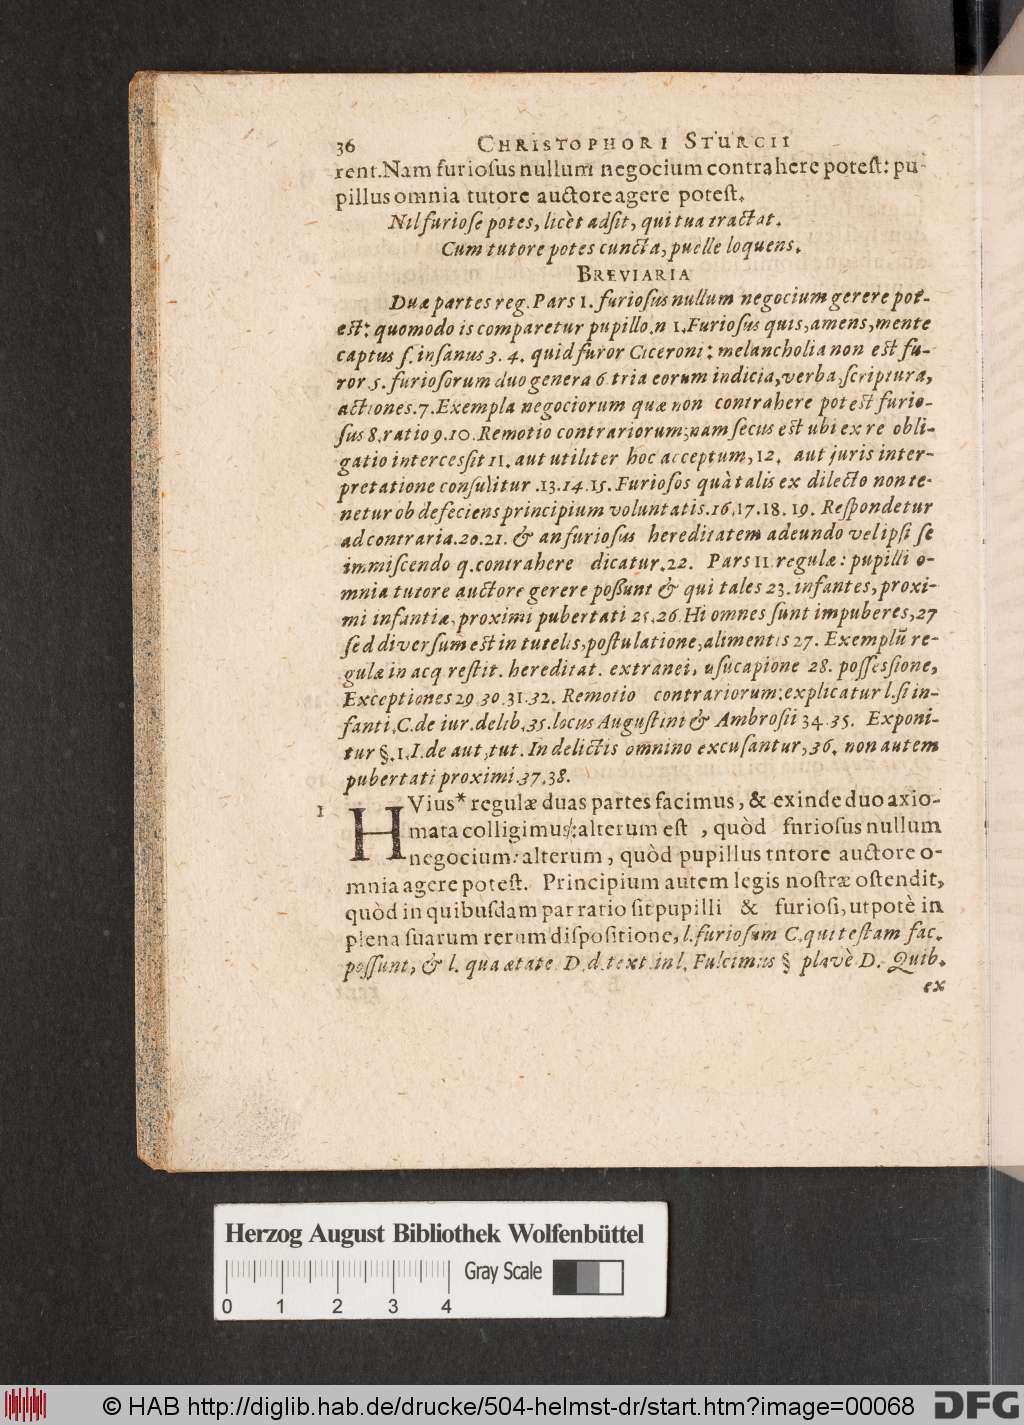 36 CHRISTOPHORI STURCII
rent. Nam furiosus nullum negocium contrahere potest: pu-
pillus omnia tutore auctore agere potest.
Nil furiose potes, licèt adsit, qui tua tractat.
Cum tutore potes cuncta, puelle loquens.
BREVIARIA
Duæ partes reg. Pars 1. furiosus nullum negocium gerere pot-
est: quomodo is comparetur pupillo. n 1. Furiosus quis, amens, mente
captus s. insanus 3. 4. quid furor Ciceroni: melancholia non est fu-
ror 5. furiosorum duo genera 6 tria eorum indicia, verba, scriptura,
actiones. 7. Exempla negociorum quæ non contrahere potest furio-
sus 8. ratio 9. 10. Remotio contrariorum; nam secus est ubi ex re obli-
gatio intercessit 11. aut utiliter hoc acceptum, 12. aut juris inter-
pretatione consulitur .13. 14. 15. Furiosos quà talis ex dilecto non te-
netur ob defeciens principium voluntatis. 16. 17. 18. 19. Respondetur
ad contraria. 20. 21. & an furiosus hereditatem adeundo vel ipsi se
immiscendo q. contrahere dicatur. 22. Pars II regulæ: pupilli o-
mnia tutore auctore gerere possunt & qui tales 23. infantes, proxi-
mi infantiæ, proximi pubertati 25. 26 Hi omnes sunt impuberes, 27
sed diversum est in tutelis, postulatione, alimentis 27. Exemplū re-
gulæ in acq restit. hereditat. extranei, usucapione 28. possessione,
Exceptiones 29 30. 31. 32. Remotio contrariorum: explicatur l. si in-
fanti, C. de iur. delib. 35. locus Augustini & Ambrosii 34. 35. Exponi-
tur §. 1. I. de aut, tut. In delictis omnino excusantur, 36. non autem
pubertati proximi. 37. 38.
1 HVius* regulæ duas partes facimus, & exinde duo axio-
mata colligimus: alterum est , quòd furiosus nullum
negocium: alterum, quòd pupillus tntore auctore o-
mnia agere potest. Principium autem legis nostræ ostendit,
quòd in quibusdam par ratio sit pupilli & furiosi, utpotè in
plena suarum rerum dispositione, l. furiosum C. qui testam fac.
possunt, & l. qua ætate D. d. text in l. Fulcimus § planè D. Quib.
ex
Herzog August Bibliothek Wolfenbüttel
Gray Scale
0 1 2 3 4
© HAB http://diglib.hab.de/drucke/504-helmst-dr/start.htm?image=00068
DFG